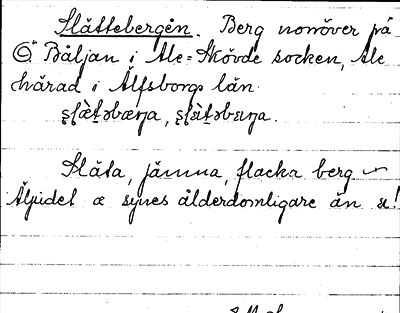 Slättebergen. Berg norröver på
Ö Båljan i Ale-Skövde socken, Ale
härad i Älfsborgs län.
Släta, jämna, flacka berg ~
Äljudet æ synes ålderdomligare än